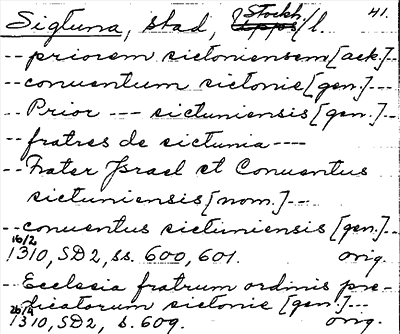 Sigtuna, stad, Upps Stockh/l. 41.
-- priorem sictoniensem [ack.] --
-- conuentum sictonie [gen.] ---
-- Prior --- sictuniensis [gen.] --
-- fratres de sictunia ----
-- Frater Jsrael et Conuentus
sictuniensis [nom.] --
-- conuentus sictuniensis [gen.] --
16/2 1310, SD2, ss. 600, 601. orig.
-- Ecclesia fratrum ordinis pre-
dicatorum sictonie [gen.] ---
26/4 1310, SD2, s. 609. orig.